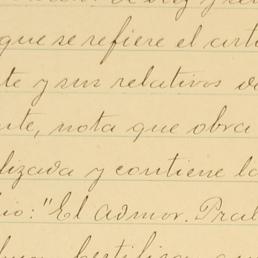 que se refiere el artí
te y sus relativos de
nte, nota que obra
lizada y contiene la
io: "El Admor. Pral